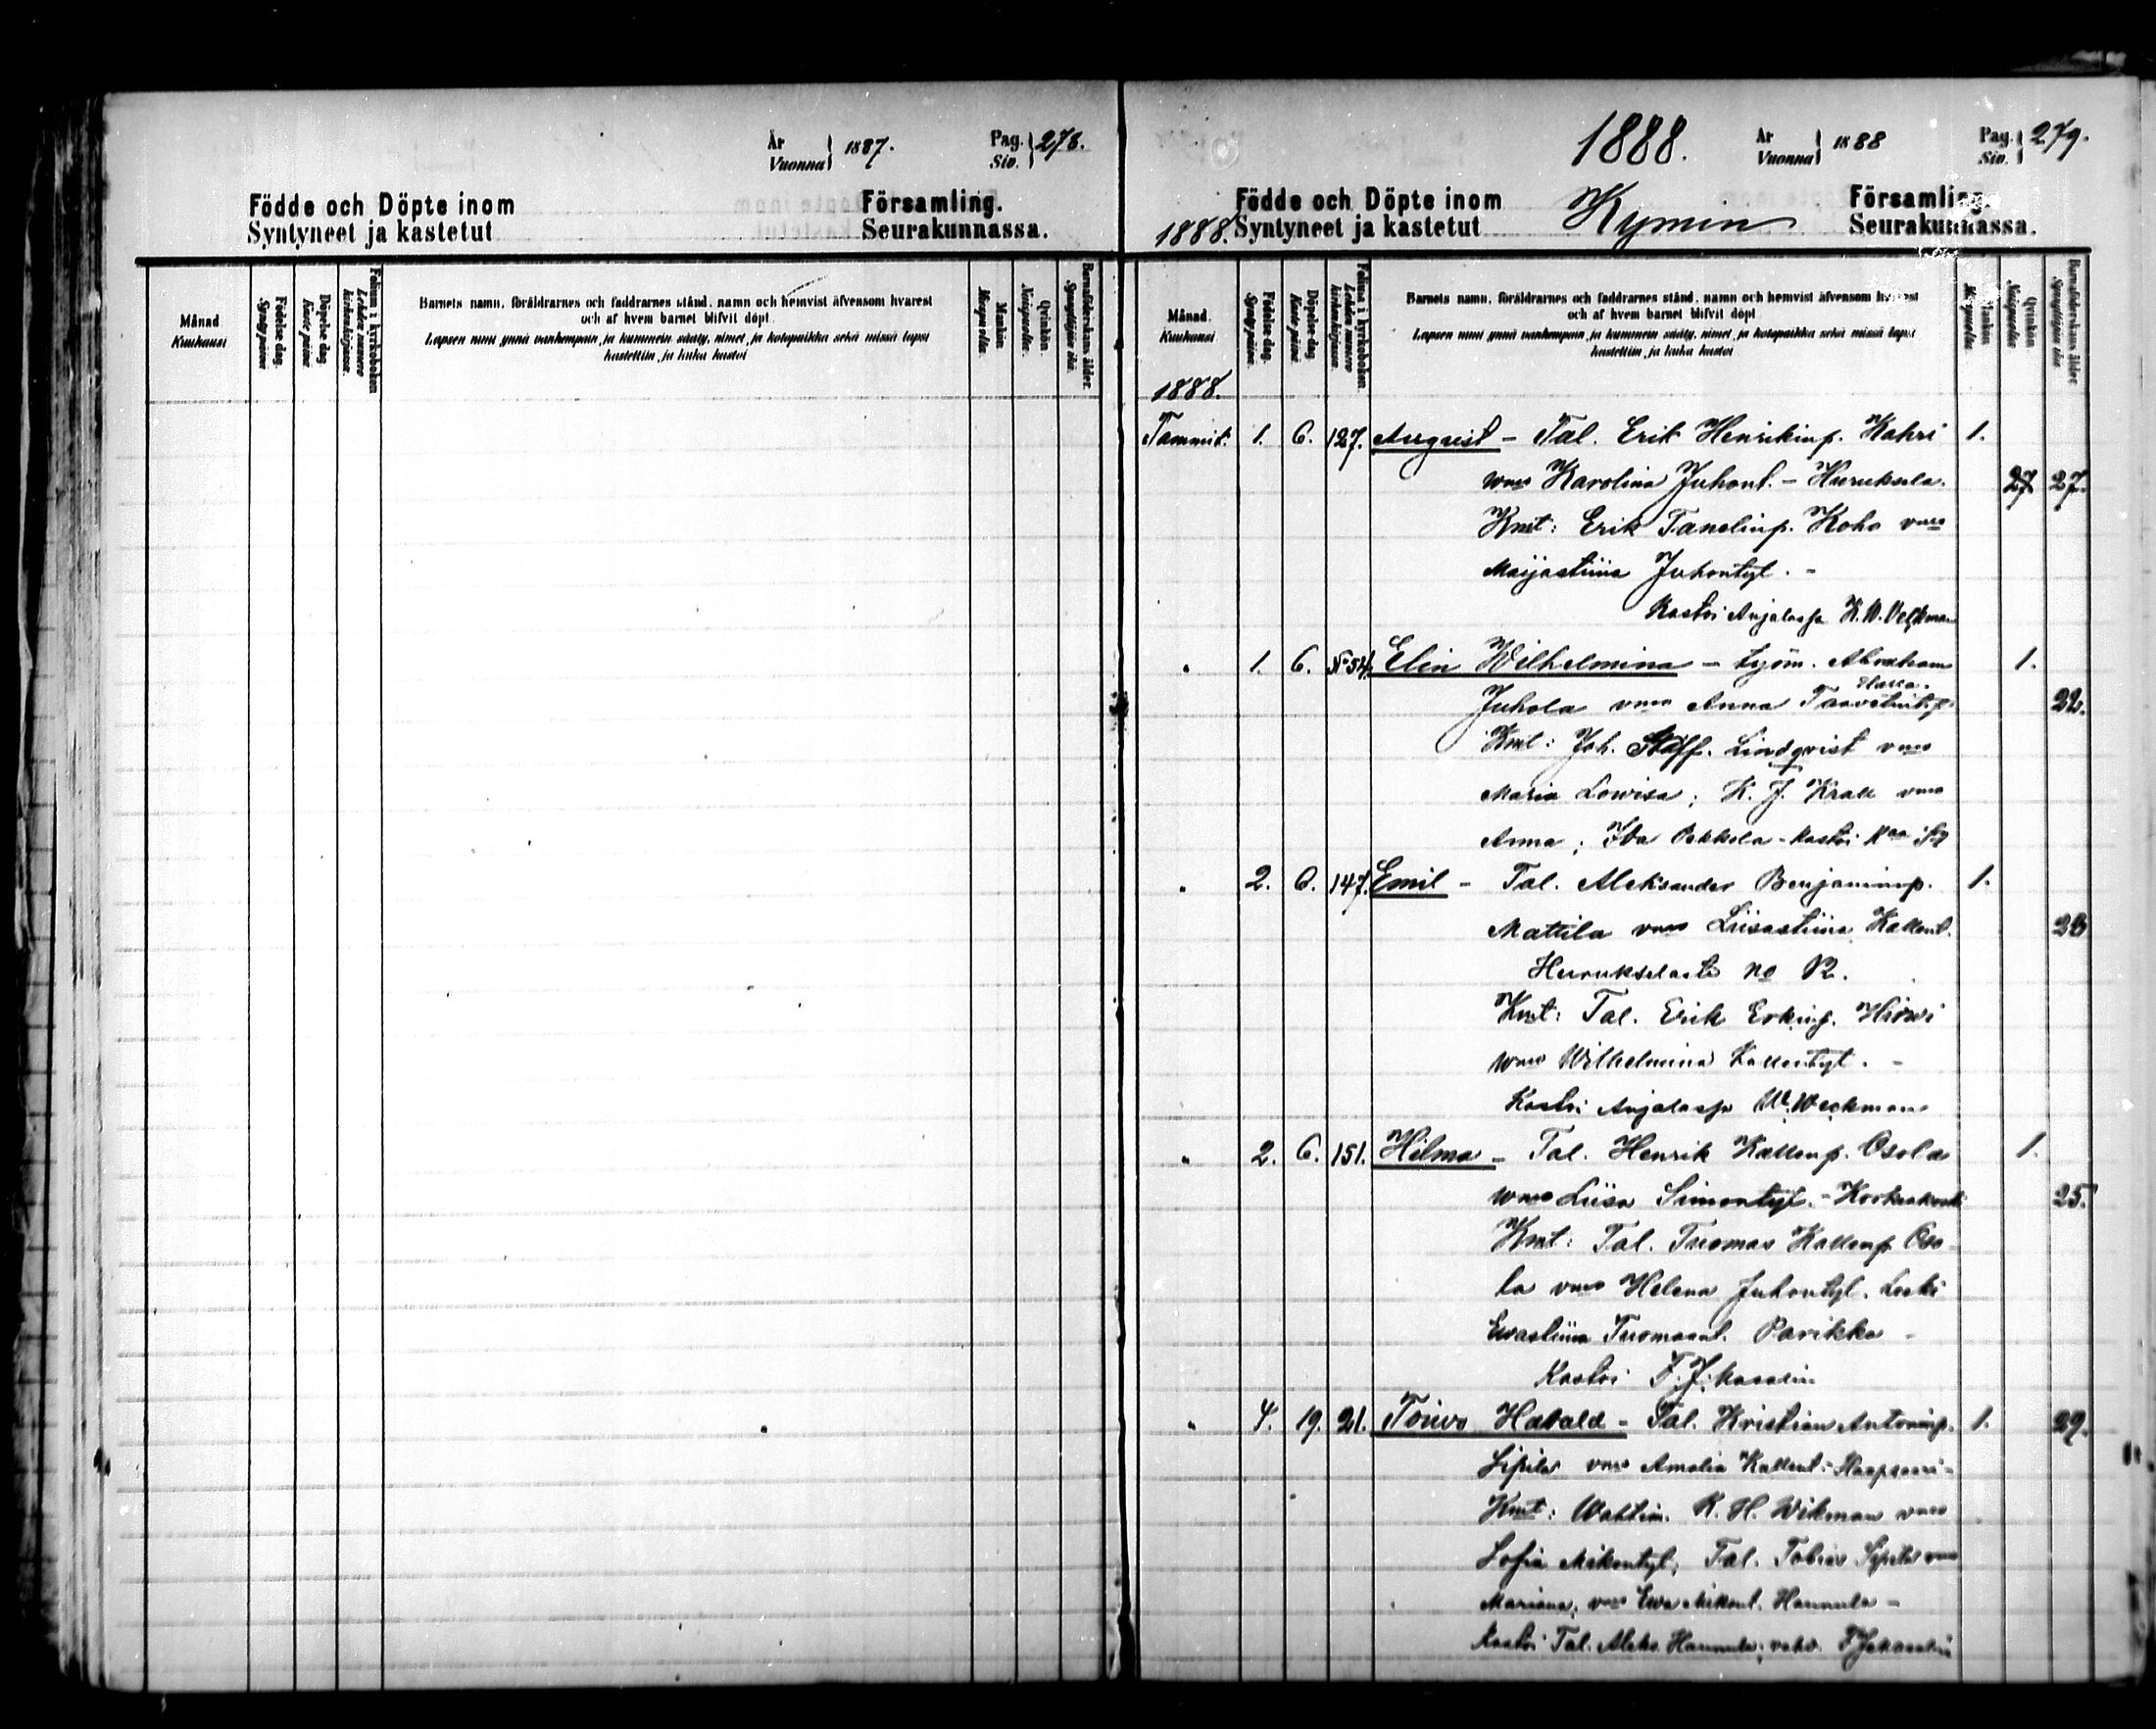 År
Vuonna
1887.
Pag.
Siv.
278.
Födde och Döpte inom
Församling.
Syntyneet ja kastetut
Seurakunnassa.
Månad
Kuukausi
Födelse dag.
Syntypäivä
Döpelse dag
Kaste päivä
Folium i kyrkoboken
Lehden numero kirkonkirjassa.
Barnets namn, föräldrarnes och faddrarnes stånd, namn och hemvist äfvensom hvarest
och af hvem barnet blifvit döpt
Lapsen nimi ynnä vanhempain, ja kummein sääty, nimet, ja kotopaikka sekä missä lapsi
kastettiin, ja kuka kastoi
Mankön.
Miespuolia.
Qvinkön.
Naispuolia.
Barnföderskans ålder.
Synnyttäjän ikä.
1888.
År
Vuonna
1888
Pag.
Siv.
279.
Födde och Döpte inom
Kymin
Församling.
1888.
Syntyneet ja kastetut
Seurakunnassa.
Månad.
Kuukausi
Födelse dag.
Syntypäivä.
Döpelse dag.
Kaste päivä
Folium i kyrkoboken
Lehden numero kirkonkirjassa.
Barnets namn, föräldrarnes och faddrarnes stånd, namn och hemvist äfvensom hvarest
och af hvem barnet blifvit döpt
Lapsen nimi ynnä vanhempain, ja kummein sääty, nimet, ja kotopaikka sekä missä lapsi
kastettiin, ja kuka kastoi
Mankön
Miespuolia
Qvinkön
Naispuolia
Barnföderskans ålder
Synnyttäjän ikä
1888.
Tammik. 1. 6. 127. August - Tal. Erik Henrikinp. Kahri 1.
wmo Karolina Juhont. - Huruksela. 27 27.
Kmt: Erik Tanelinp. Koho vmo
Maijastiina Juhontyt. -
Kastoi Anjalassa K. W. Veckman
" 1. 6. No 54. Elin Wilhelmina - työm. Abraham 1.
Juhola vmo Anna Taavetintyt. 22.
Kmt: Joh. Staff. Lindqvist vmo
Maria Lowisa; K. J. Krall vmo
Anna; Ida - kastoi
" 2. 6. 147. Emil - Tal. Aleksander Benjaminp. 1.
Mattila vmo Liisastiina Kallent.
Hurukselasta no 12.
Kmt: Tal. Erik Erkinp. Hirwi
wmo Wilhelmina Kallentyt. -
Kastoi Anjalassa W. Weckman
" 2. 6. 151. Hilma - Tal. Henrik Kallenp. Osola 1.
wmo Liisa Simontyt. - Korkeakoski 25.
Kmt: Tal. Tuomas Kallenp. Oso-
la vmo Helena Juhontyt. Leski
Ewastiina Tuomaant. Parikka -
Kastoi F. J.
" 4. 19. 21. Toiwo Harald - Tal. Kristian Antoninp. 1. 29.
Sipila vmo Amalia Kallent. - Haapsaari -
Kmt: K. H. Wikman vmo
Sofia Mikontyt; Tal. Tobias Sipila vmo
Mariana; vmo Ewa Mikont. Hannula -
Kastoi Tal. Aleks. Hannula; vahv. F. J.